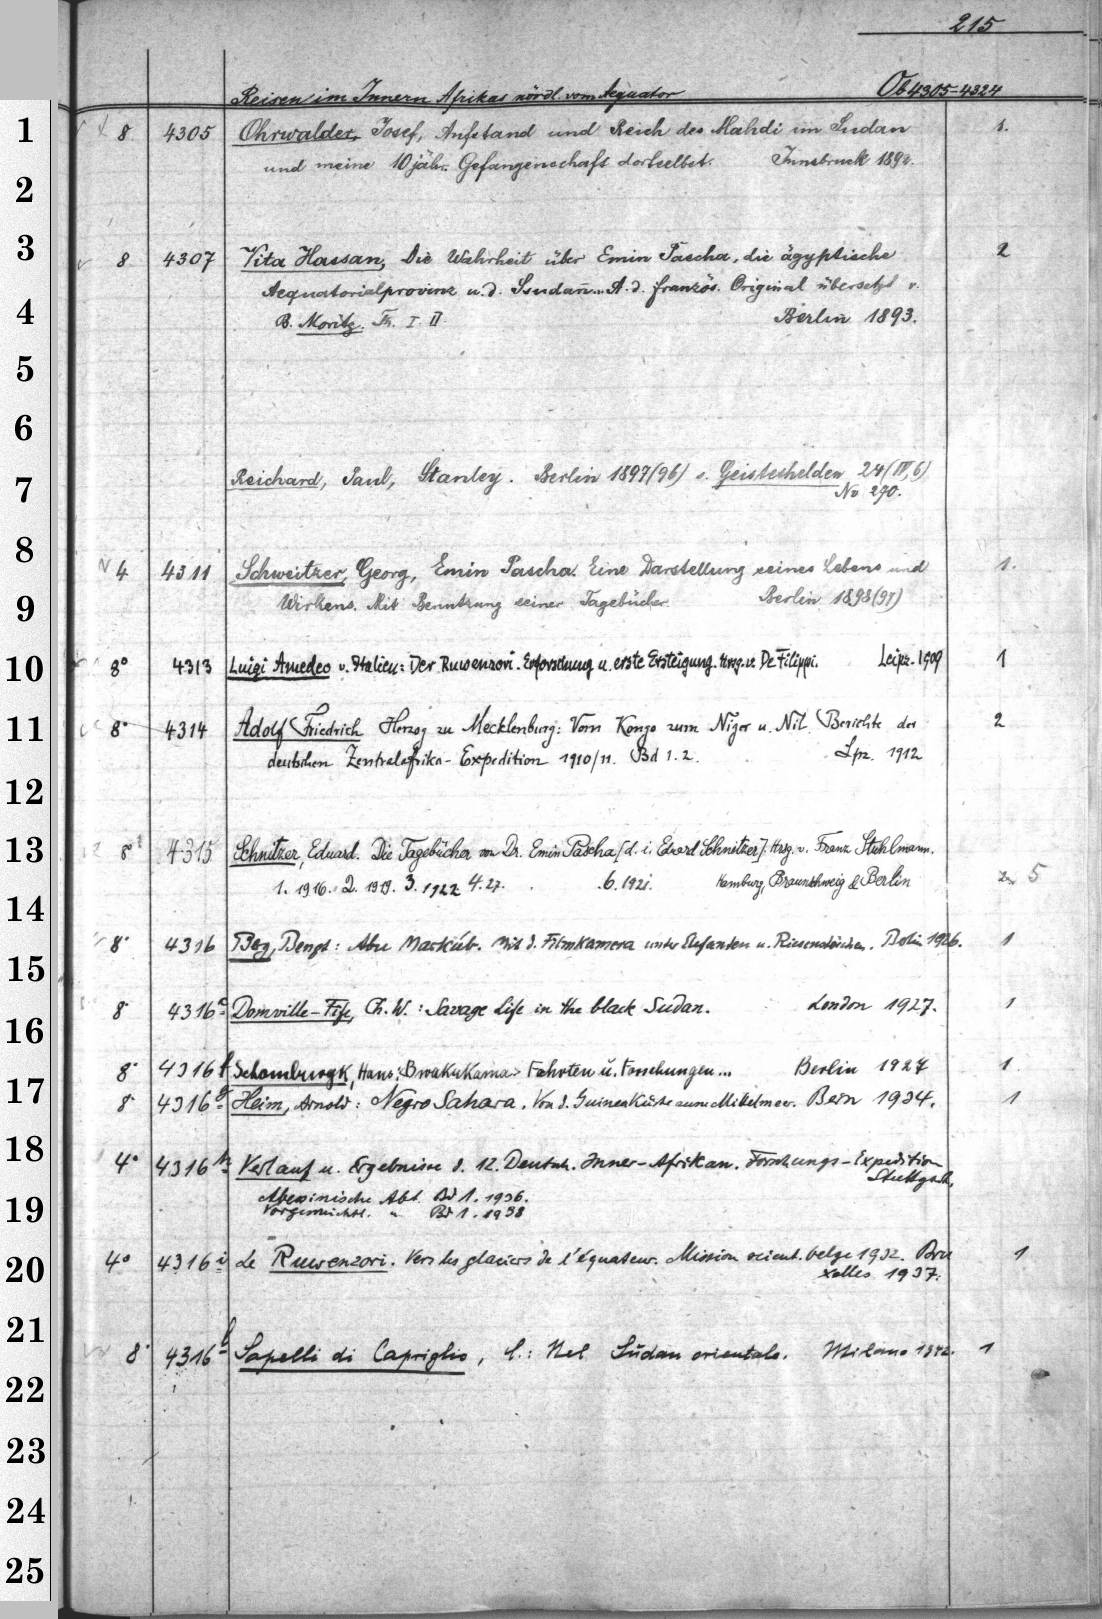 215
Reisen im Innern Afrikas nördl. vom Aequator Ob 4305-4324
1 8 4305 Ohrwalder, Josef, Aufstand und Reich des Mahdi im Sudan 1.
und meine 10jähr. Gefangenschaft dortselbst. Innsbruck 1892.
2
3 8 4307 Vita Hassan, Die Wahrheit über Emin Pascha, die ägyptische 2
Aequatorialprovinz u. d. Ssudan. A. d. französ. Original übersetzt v.
4 B. Moritz. Th. I. II Berlin 1893.
5
6
7 Reichard, Paul, Stanley. Berlin 1897(96) s. Geisteshelden 24 (IV,6)
No 290.
8 4 4311 Schweitzer, Georg, Emin Pascha. Eine Darstellung seines Lebens und 1.
9 Wirkens. Mit Benutzung seiner Tagebücher. Berlin 1898(97)
10 8° 4313 Luigi Amedeo v. Italien: Der Ruwenzori. Erforschung u. erste Ersteigung. Hrsg. v. De Filippi. Leipz. 1909 1
11 8° 4314 Adolf Friedrich Herzog zu Mecklenburg: Vom Kongo zum Niger u. Nil. Berichte der 2
deutschen Zentralafrika-Expedition 1910/11. Bd 1. 2. Lpz. 1912
12
13 8° 4315 Schnitzer, Eduard. Die Tagebücher von Dr. Emin Pascha [d. i. Eduard Schnitzer]. Hrsg. v. Franz Stuhlmann.
1. 1916. 2. 1919. 3. 1922 4. 27. 6. 1921. Hamburg, Braunschweig & Berlin 5
14
8° 4316 Berg, Bengt: Abu Markúb. Mit d. Filmkamera unter Elefanten u. Riesenstörchen. Berlin 1926. 1
15
8 4316e Domville-Fife, Ch. W.: Savage Life in the black Sudan. London 1927. 1
16
8° 4316f Schomburgk, Hans: Bwakukama. Fahrten u. Forschungen... Berlin 1927 1
17 8 4316g Heim, Arnold: Negro Sahara. Von d. Guineaküste zum Mittelmeer. Bern 1934. 1
18 4° 4316h Verlauf u. Ergebnisse d. 12. Deutsch. Inner-Afrikan. Forschungs-Expedition
Stuttgart.
Abessinische Abt. Bd 1. 1936.
19 Vorgeschichtl. " Bd 1. 1938
20 4° 4316i Le Ruwenzori. Vers les glaciers de l'équateur. Mission scient. belge 1932. Bru 1
xelles 1937.
21
8° 4316l Sapelli di Capriglio, L.: Nel Sudan orientale. Milano 1942. 1
22
23
24
25